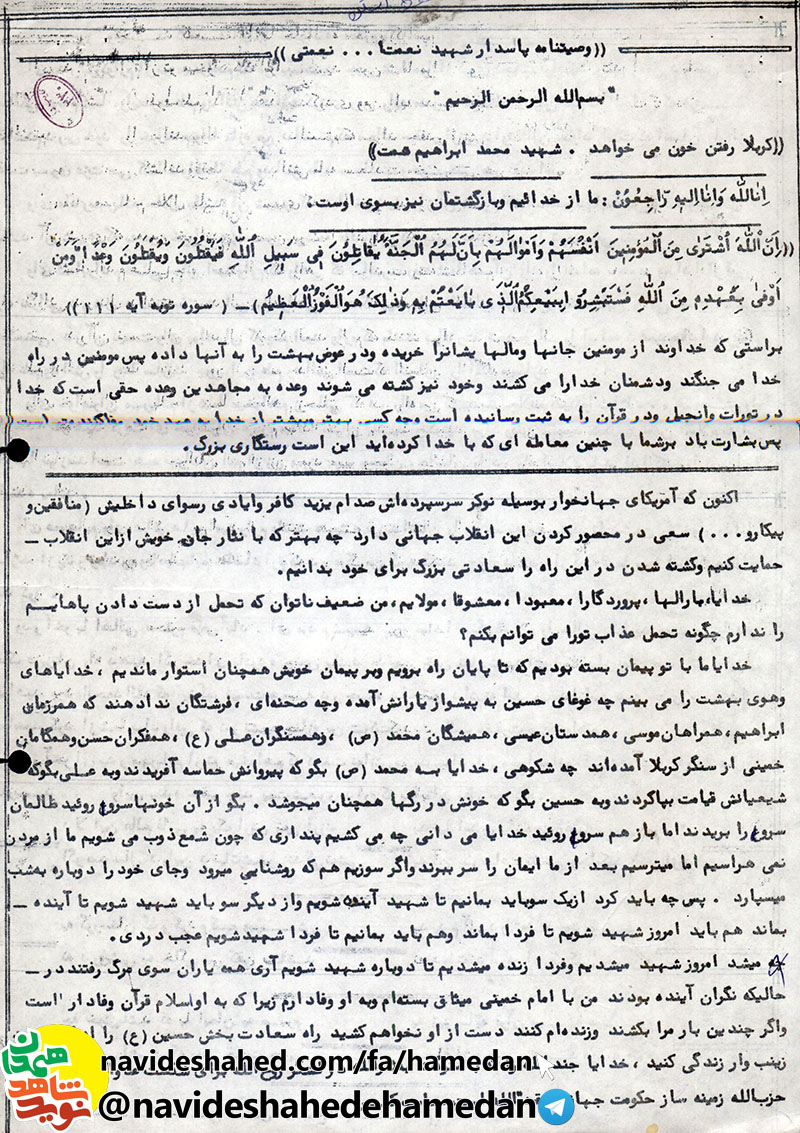 ((وصیتنامه پاسدار شهید نعمت‌ا... نجمتی))
"بسم‌الله الرحمن الرحیم"
((کربلا رفتن خون می خواهد . شهید محمد ابراهیم همت))
اِنالله وَاِنااِلیهِ رٰاجِعُوُنْ : ما از خدائیم وبازگشتمان نیز بسوی اوست.
((اِنَ اللهَ اُشْتَرٰی مِنَ الْمُؤمِنینَ اَنْفُسَهُمْ وَاَمْوٰالَهُمْ بِاَنَّ لَهُمُ الْجَنَّةُ یُقاتِلُونَ فی سَبیلِ اللهِ فَیَقْتُلُونَ وَیُقْتَلُونَ وَعْدًا وَمَنْ
اَوْفیٰ بِعَهْدِهِ مِنَ اللهِ فَسْتَبْشِرُو ابِبَیْعِکُمُ الَّذی بٰایَعْتُمْ بِهِ وَذٰلِکَ هُوَ الْفَوْزُ الْعَظیُم) - ( سوره توبه آیه ۱۱۱))
براستی که خداوند از مومنین جانها ومالها یشانرا خریده ودر عوض بهشت را به آنها داده پس مومنین در راه
خدا می جنگند ودشمنان خدارا می کشند وخود نیز کشته می شوند وعده به مجاهدین وعده حقی است که خدا
در تورات وانجیل ودر قرآن را به ثبت رسانیده است وچه کسی بهتر وبیشتر از خدا به عهد خود وفاکننده است
پس بشارت باد برشما با چنین معامله ای که با خدا کرده‌اید این است رستگاری بزرگ.
اکنون که آمریکای جهانخوار بوسیله نوکر سرسپرده‌اش صدام یزید کافر وایادی رسوای داخلیش (منافقین و
پیکارو...) سعی در محصور کردن این انقلاب جهانی دارد چه بهتر که با نثار جان خویش از این انقلاب -
حمایت کنیم وکشته شدن در این راه را سعادتی بزرگ برای خود بدانیم.
خدایا، بارالها، پروردگارا، معبودا، معشوقا، مولایم، من ضعیف ناتوان که تحمل از دست دادن پاهایم
را ندارم چگونه تحمل عذاب تورا می توانم بکنم؟
خدایا ما با تو پیمان بسته بودیم که تا پایان راه برویم وبر پیمان خویش همچنان استوار ماندیم ، خدایاهای
وهوی بهشت را می بینم چه غوغای حسین به پیشواز یارانش آمده وچه صحنه‌ای ، فرشتگان ندا دهند که همرزمان
ابراهیم، همراهان موسی ، همدستان عیسی ، همیشگان محمد (ص) ، وهمسنگران علی (ع) ، همفکران حسن وهمگامان
خمینی از سنگر کربلا آمده‌اند چه شکوهی ، خدایا بسه محمد (ص) بگو که پیروانش حماسه آفریدند وبه علی بگو که
شیعیانش قیامت بپاکردند وبه حسین بگو که خونش در رگها همچنان میجوشد . بگو از آن خونها سروها روئید ظالمان
سروها را بریدند اما باز هم سروها روئید خدایا می دانی چه می کشیم پنداری که چون شمع ذوب می شویم ما از مردن
نمی هراسیم اما میترسیم بعد از ما ایمان را سر ببرند واگر سوزیم هم که روشنایی میرود وجای خود را دوباره به‌شب
میسپارد . پس چه باید کرد از یک سوباید بمانیم تا شهید آینده شویم واز دیگر سو باید شهید شویم تا آینده -
بماند هم باید امروز شهید شویم تا فردا بماند وهم باید بمانیم تا فردا شهید شویم عجب دردی.
چه میشد امروز شهید میشدیم وفردا زنده میشدیم تا دوباره شهید شویم آری همه یاران سوی مرگ رفتند در -
حالیکه نگران آینده بودند من با امام خمینی میثاق بسته‌ام وبه او وفادارم زیرا که به او اسلام قرآن وفادار است
واگر چندین بار مرا بکشند وزنده‌ام کنند دست از او نخواهم کشید راه سعادت بخش حسین (ع) را
زینب وار زندگی کنید ، خدایا
حزب‌الله زمینه ساز حکومت
navideshahed.com/fa/hamedan
@navideshahedehamedan
نوید شاهد همدان